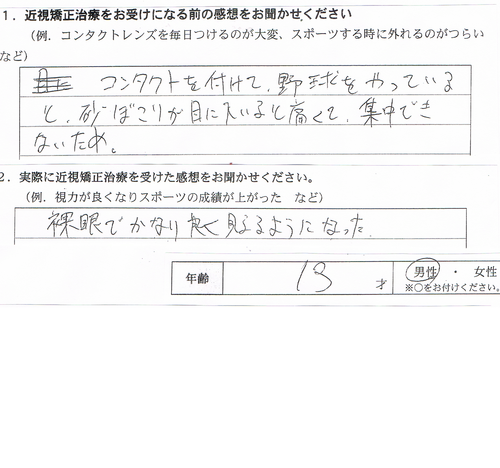 1．近視矯正治療をお受けになる前の感想をお聞かせください
（例．コンタクトレンズを毎日つけるのが大変、スポーツする時に外れるのがつらい
など）
コンタクトを付けて、野球をやっている
と、砂ぼこりが目に入いると痛くて、集中でき
ないため。
2．実際に近視矯正治療を受けた感想をお聞かせください。
（例．視力が良くなりスポーツの成績が上がった　など）
裸眼でかなり良く見えるようになった.
年齢 13 才 男性 ・ 女性
※○をお付けください。